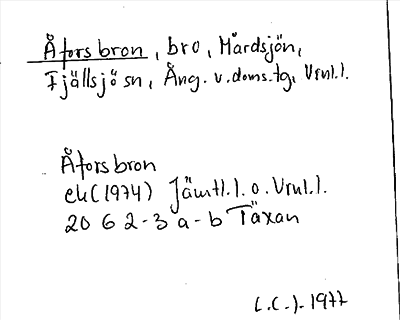 Åforsbron, bro, Mårdsjön,
Fjällsjö sn, Ång. v. doms.tg, Vrnl.l.
Åforsbron
ek (1974) Jämtl.l. o. Vrnl.l.
20 G 2-3 a-b Täxan
L.C.). 1977